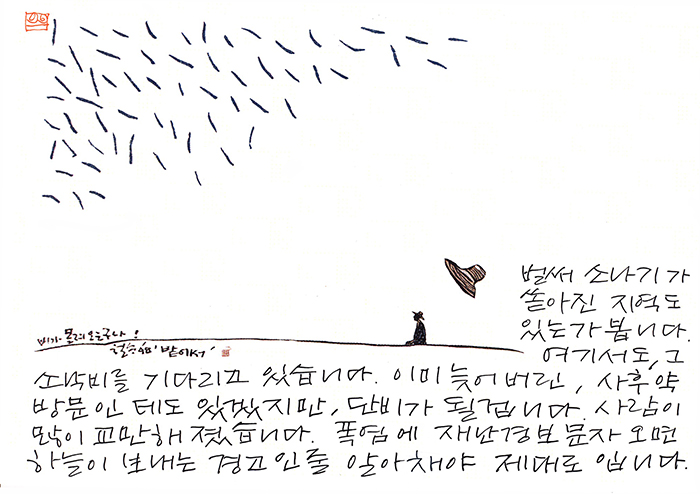 비가 몰려오는구나!
'밭에서'
벌써 소나기가
쏟아진 지역도
있는가 봅니다.
여기서도, 그
소낙비를 기다리고 있습니다. 이미 늦어버린, 사후약
방문인 테도 있겠지만, 단비가 될겁니다. 사람이
많이 교만해 졌습니다. 폭염에 재난경보 문자 오면
하늘이 보내는 경고인줄 알아채야 제대로 입니다.